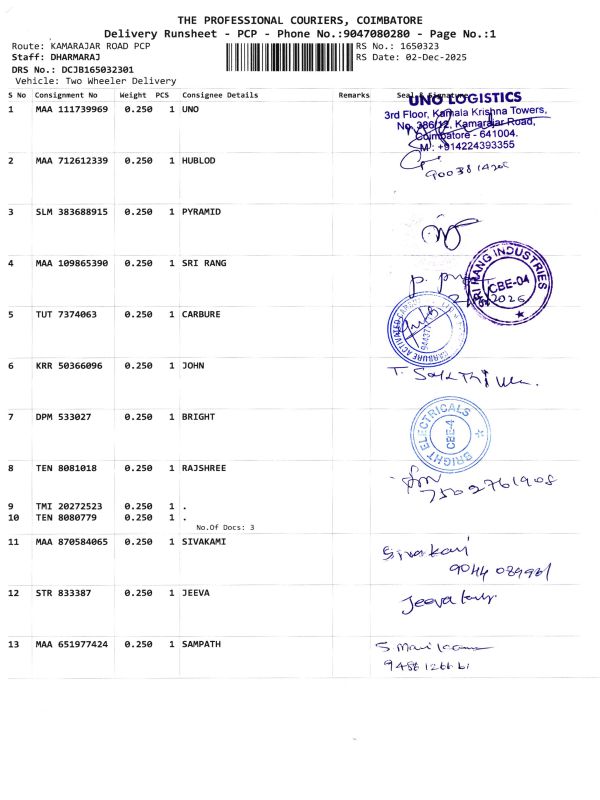 THE PROFESSIONAL COURIERS, COIMBATORE
Delivery Runsheet - PCP - Phone No.:9047080280 - Page No.:1
Route: KAMARAJAR ROAD PCP RS No.: 1650323
Staff: DHARMARAJ RS Date: 02-Dec-2025
DRS No.: DCJB165032301
Vehicle: Two Wheeler Delivery
S No Consignment No Weight PCS Consignee Details Remarks Seal & Signature
1 MAA 111739969 0.250 1 UNO
UNO LOGISTICS
3rd Floor, Kamala Krishna Towers,
No. 386/12, Kamarajar Road,
Coimbatore - 641004.
M : +914224393355
2 MAA 712612339 0.250 1 HUBLOD
3 SLM 383688915 0.250 1 PYRAMID
4 MAA 109865390 0.250 1 SRI RANG
SRI RANG INDUSTRIES
CBE-04
5 TUT 7374063 0.250 1 CARBURE
CARBURE ACTIVATED
6 KRR 50366096 0.250 1 JOHN
7 DPM 533027 0.250 1 BRIGHT
BRIGHT ELECTRICALS
CBE-4
8 TEN 8081018 0.250 1 RAJSHREE
7502761908
9 TMI 20272523 0.250 1 .
10 TEN 8080779 0.250 1 .
No.Of Docs: 3
11 MAA 870584065 0.250 1 SIVAKAMI
Sivakami
12 STR 833387 0.250 1 JEEVA
Jeeva
13 MAA 651977424 0.250 1 SAMPATH